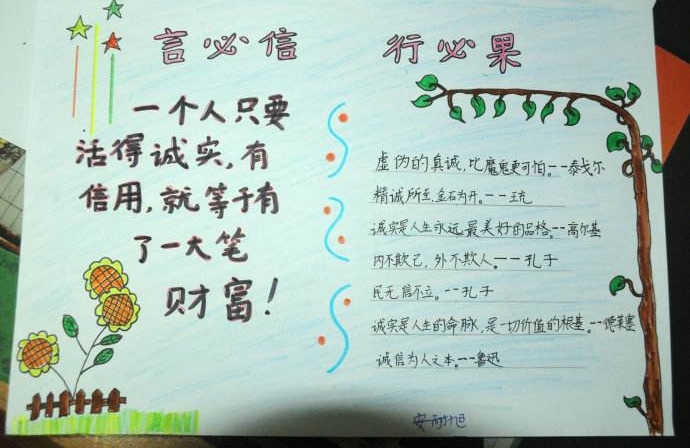 言必信 行必果
一个人只要
活得诚实,有
信用,就等于有
了一大笔
财富!
虚伪的真诚,比魔鬼更可怕。--泰戈尔
精诚所至,金石为开。--王充
诚实是人生永远最美好的品格。--高尔基
内不欺己,外不欺人。--孔子
民无信不立。--孔子
诚实是人生的命脉,是一切价值的根基。--德莱塞
诚信为人之本。---鲁迅